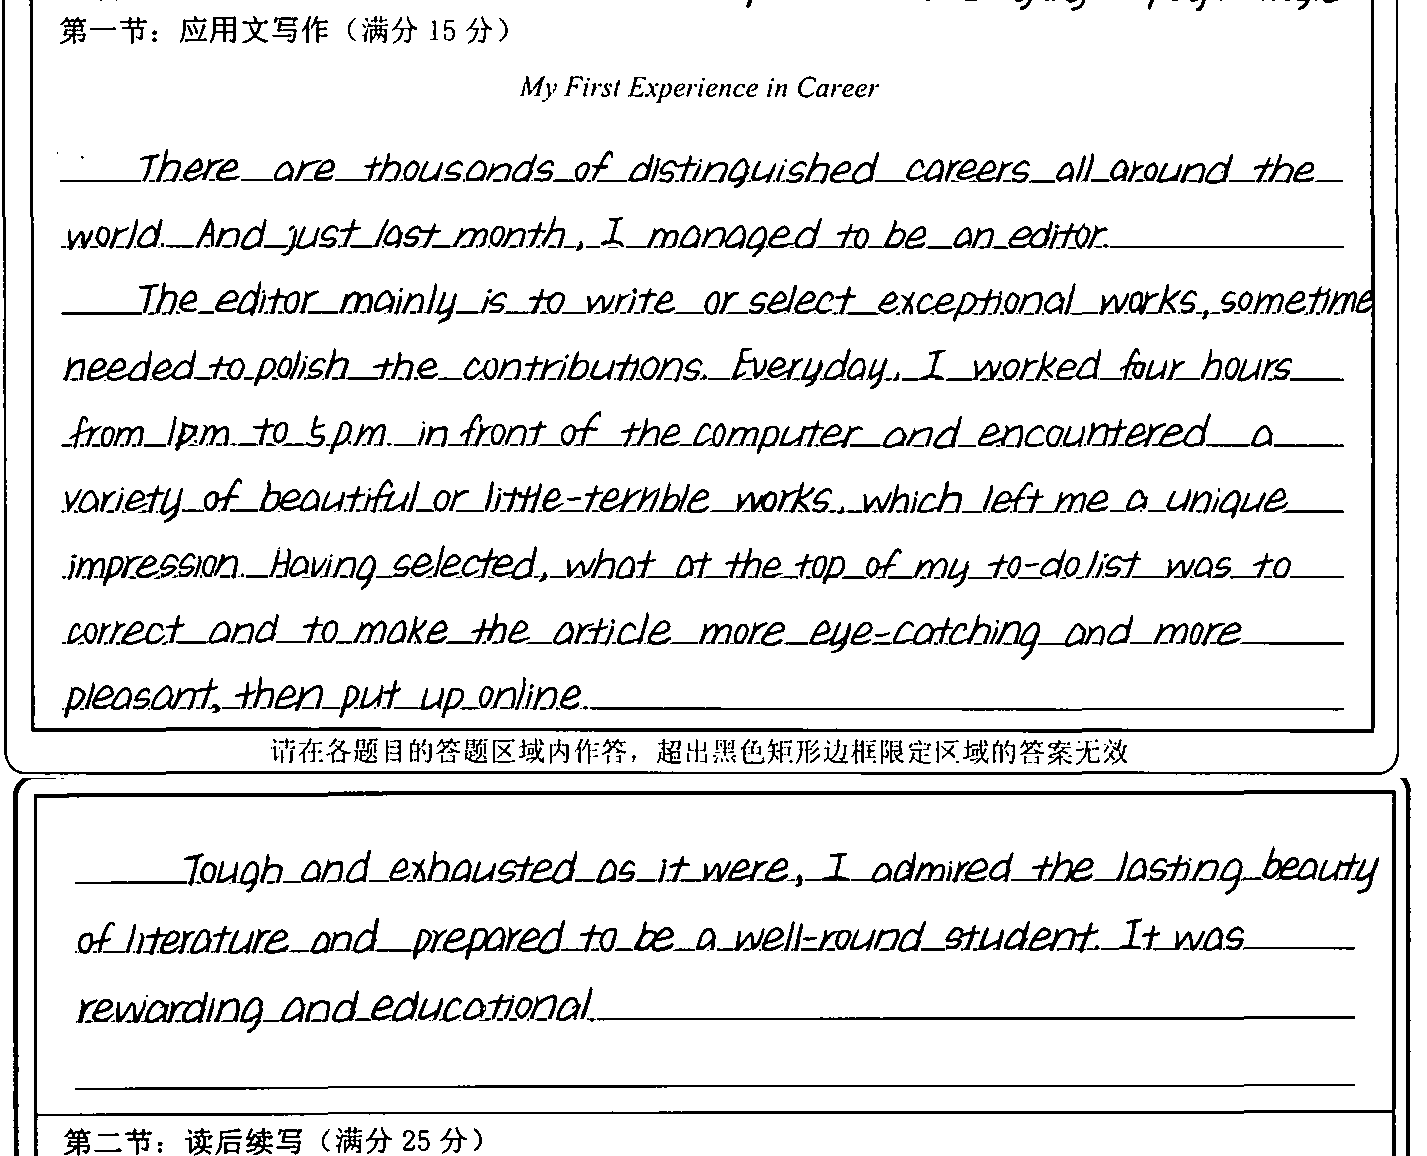 第一节：应用文写作（满分 15 分）
My First Experience in Career
There are thousands of distinguished careers all around the
world. And just last month, I managed to be an editor.
The editor mainly is to write or select exceptional works, sometime
needed to polish the contributions. Everyday, I worked four hours
from 1p.m. to 5p.m. in front of the computer and encountered a
variety of beautiful or little-terrible works, which left me a unique
impression. Having selected, what at the top of my to-do list was to
correct and to make the article more eye-catching and more
pleasant, then put up online.
请在各题目的答题区域内作答，超出黑色矩形边框限定区域的答案无效
Tough and exhausted as it were, I admired the lasting beauty
of literature and prepared to be a well-round student. It was
rewarding and educational.
第二节：读后续写（满分 25 分）